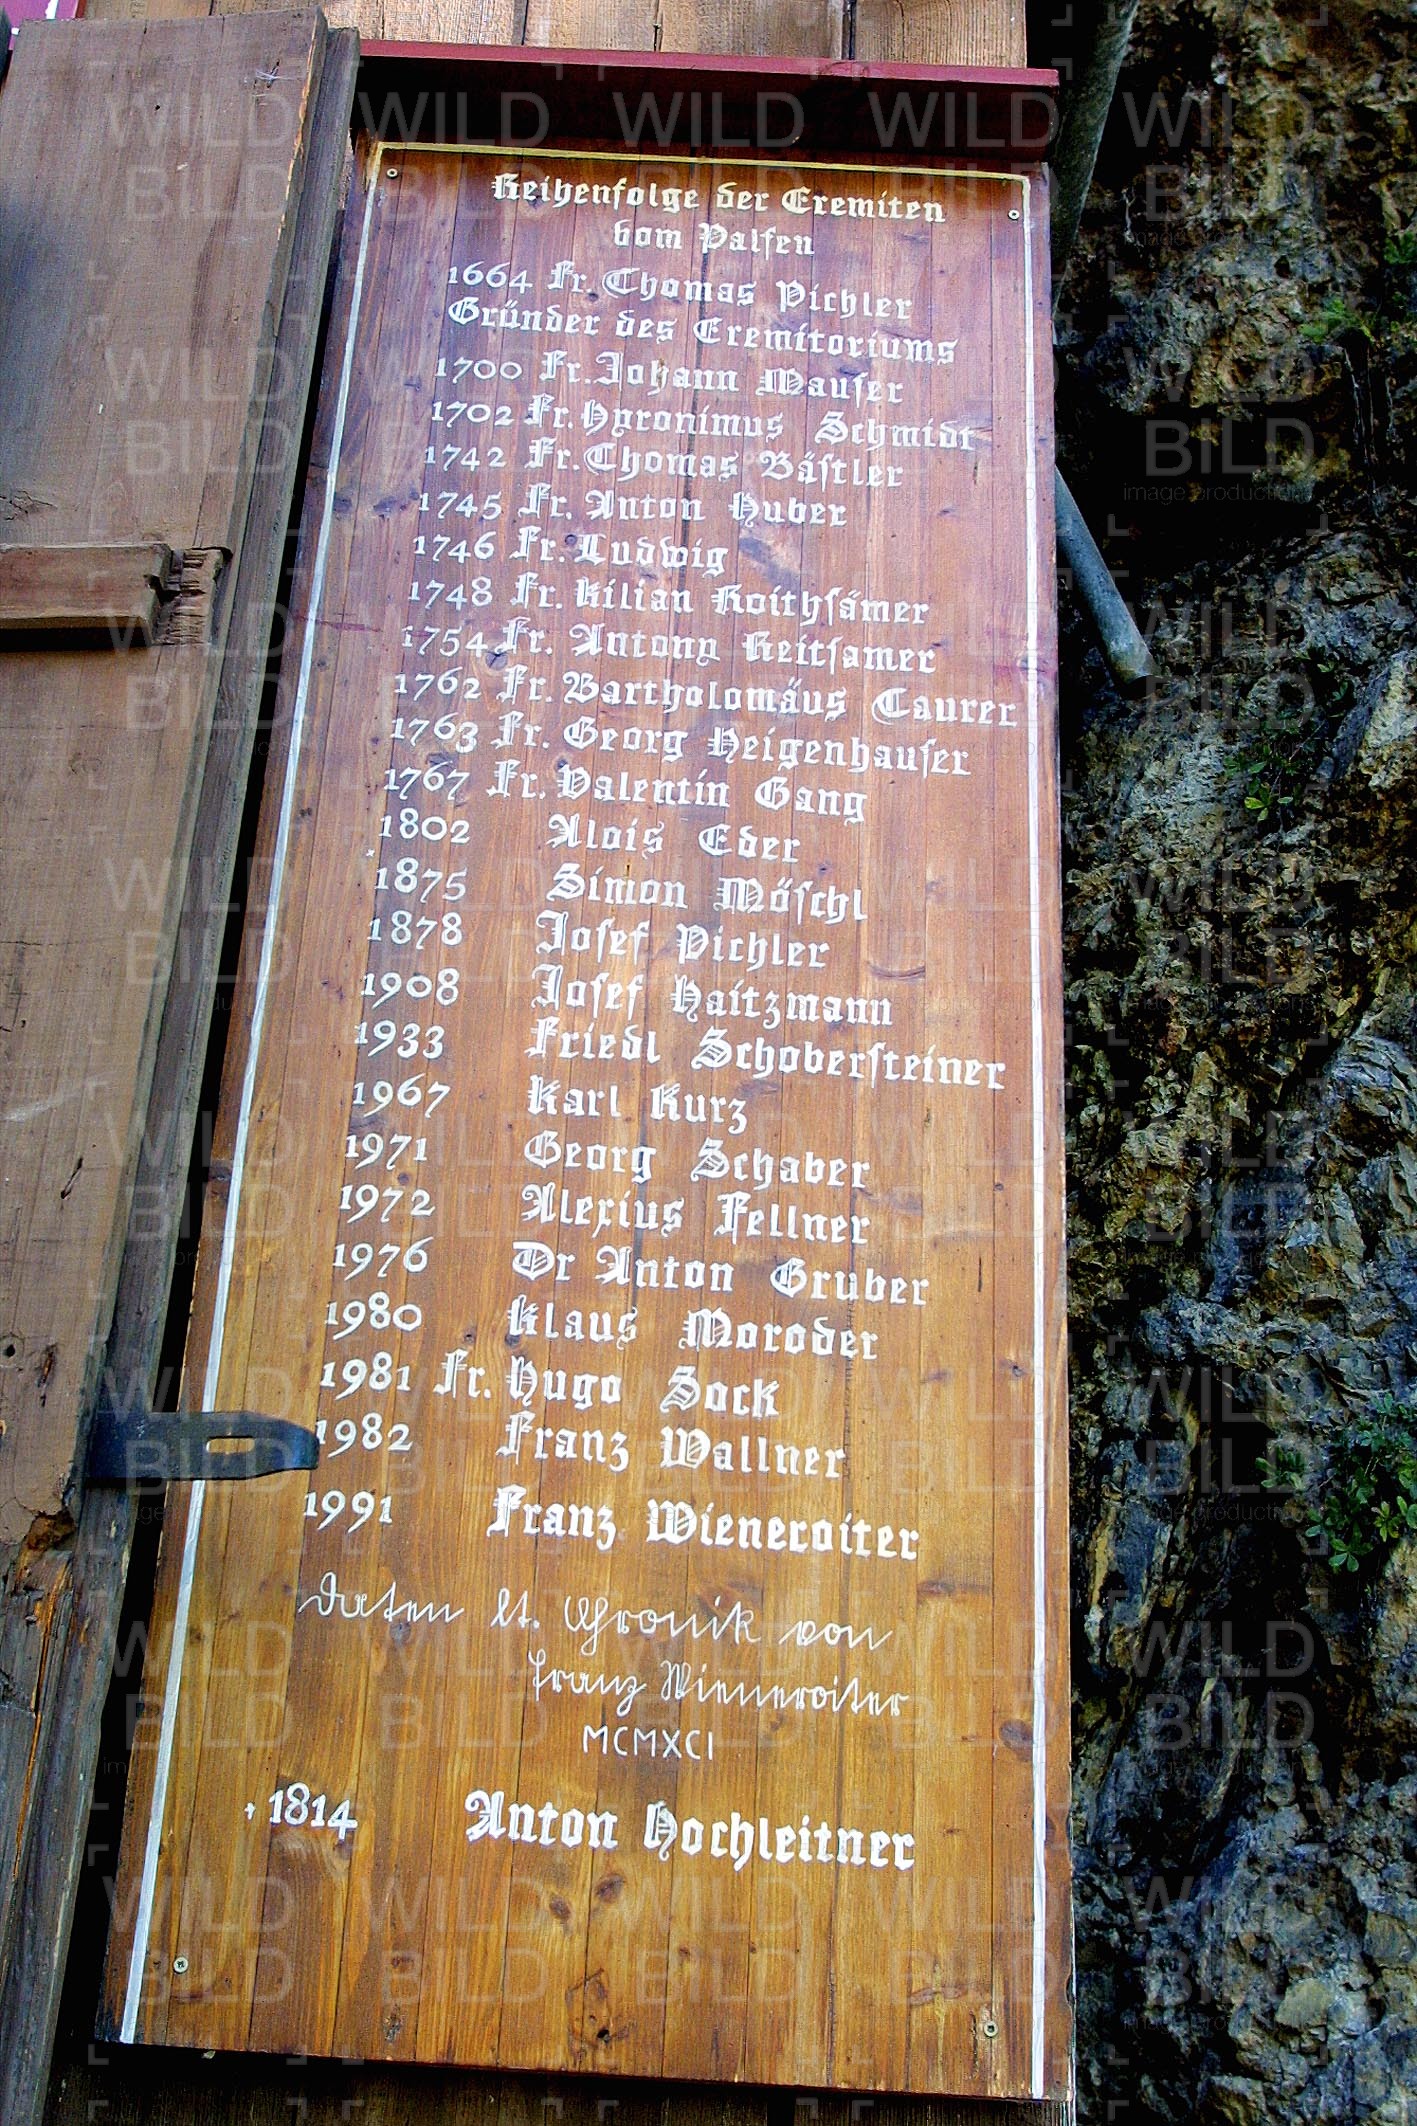 Reihenfolge der Eremiten
vom Palfen
1664 Fr. Thomas Pichler
Gründer des Eremitoriums
1700 Fr. Johann Mauser
1702 Fr. Hyronimus Schmidt
1742 Fr. Thomas Bästler
1745 Fr. Anton Huber
1746 Fr. Ludwig
1748 Fr. Kilian Roithsämer
1754 Fr. Antony Reitsamer
1762 Fr. Bartholomäus Taurer
1763 Fr. Georg Neigenhauser
1767 Fr. Valentin Gang
1802 Alois Eder
1875 Simon Möschl
1878 Josef Pichler
1908 Josef Haitzmann
1933 Friedl Schobersteiner
1967 Karl Kurz
1971 Georg Schaber
1972 Alexius Fellner
1976 Dr Anton Gruber
1980 Klaus Moroder
1981 Fr. Hugo Sock
1982 Franz Wallner
1991 Franz Wieneroiter
Daten lt. Chronik von
Franz Wieneroiter
MCMXCI
+ 1814 Anton Hochleitner
WILD
BILD
image production